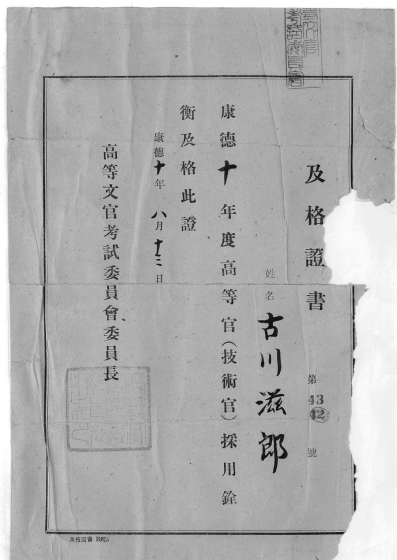 及格證書
第 43 號
姓名 古川滋郎
康德十年度高等官(技術官)採用銓
衡及格此證
康德十年八月十三日
高等文官考試委員會委員長